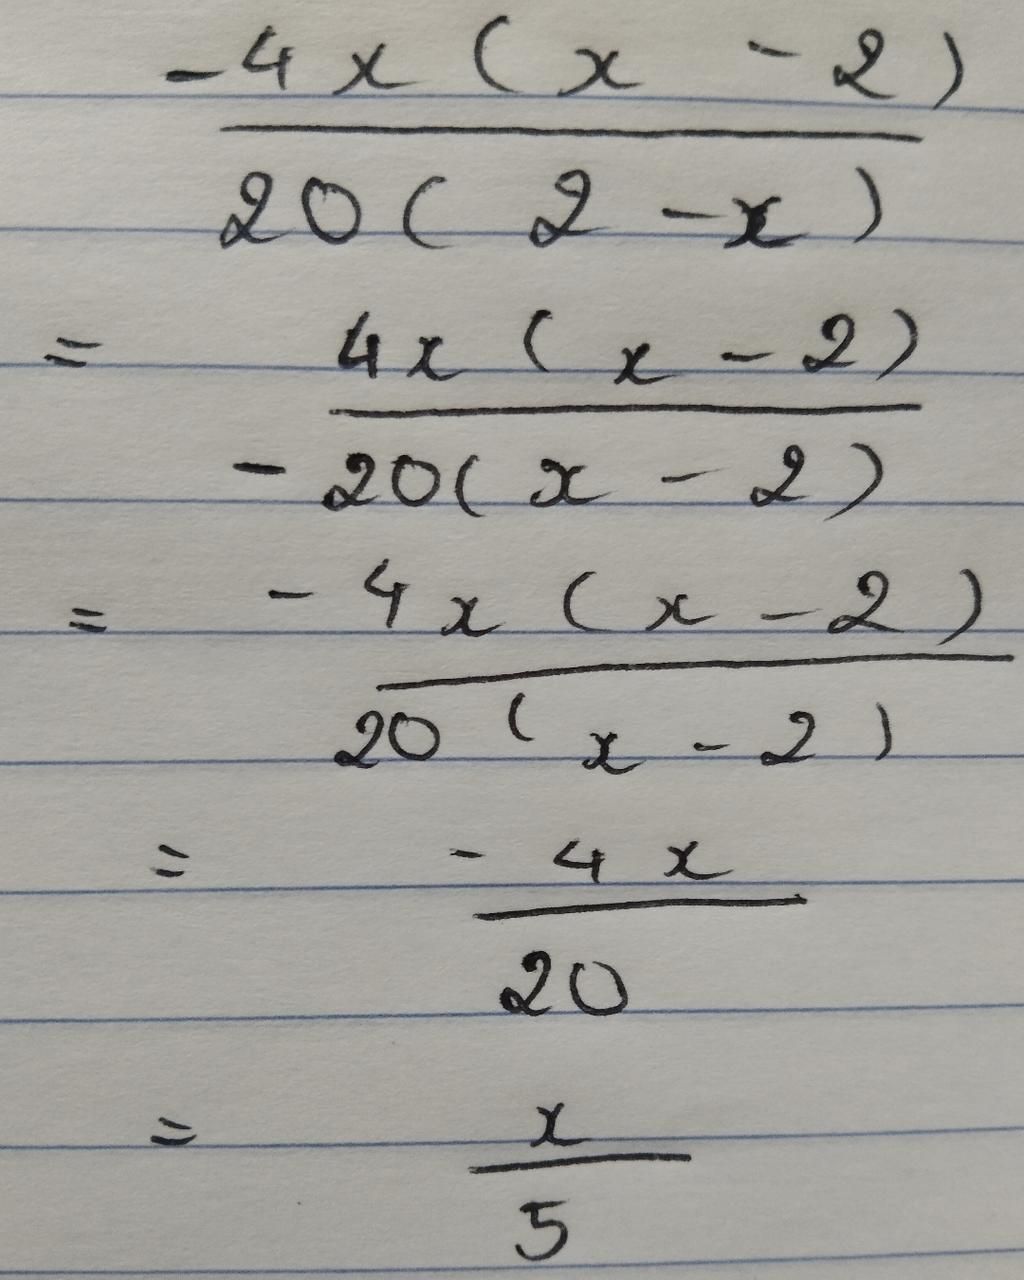 -4x(x - 2)
20(2 - x)
= 4x(x - 2)
-20(x - 2)
= -4x(x - 2)
20(x - 2)
= -4x
20
= x
5